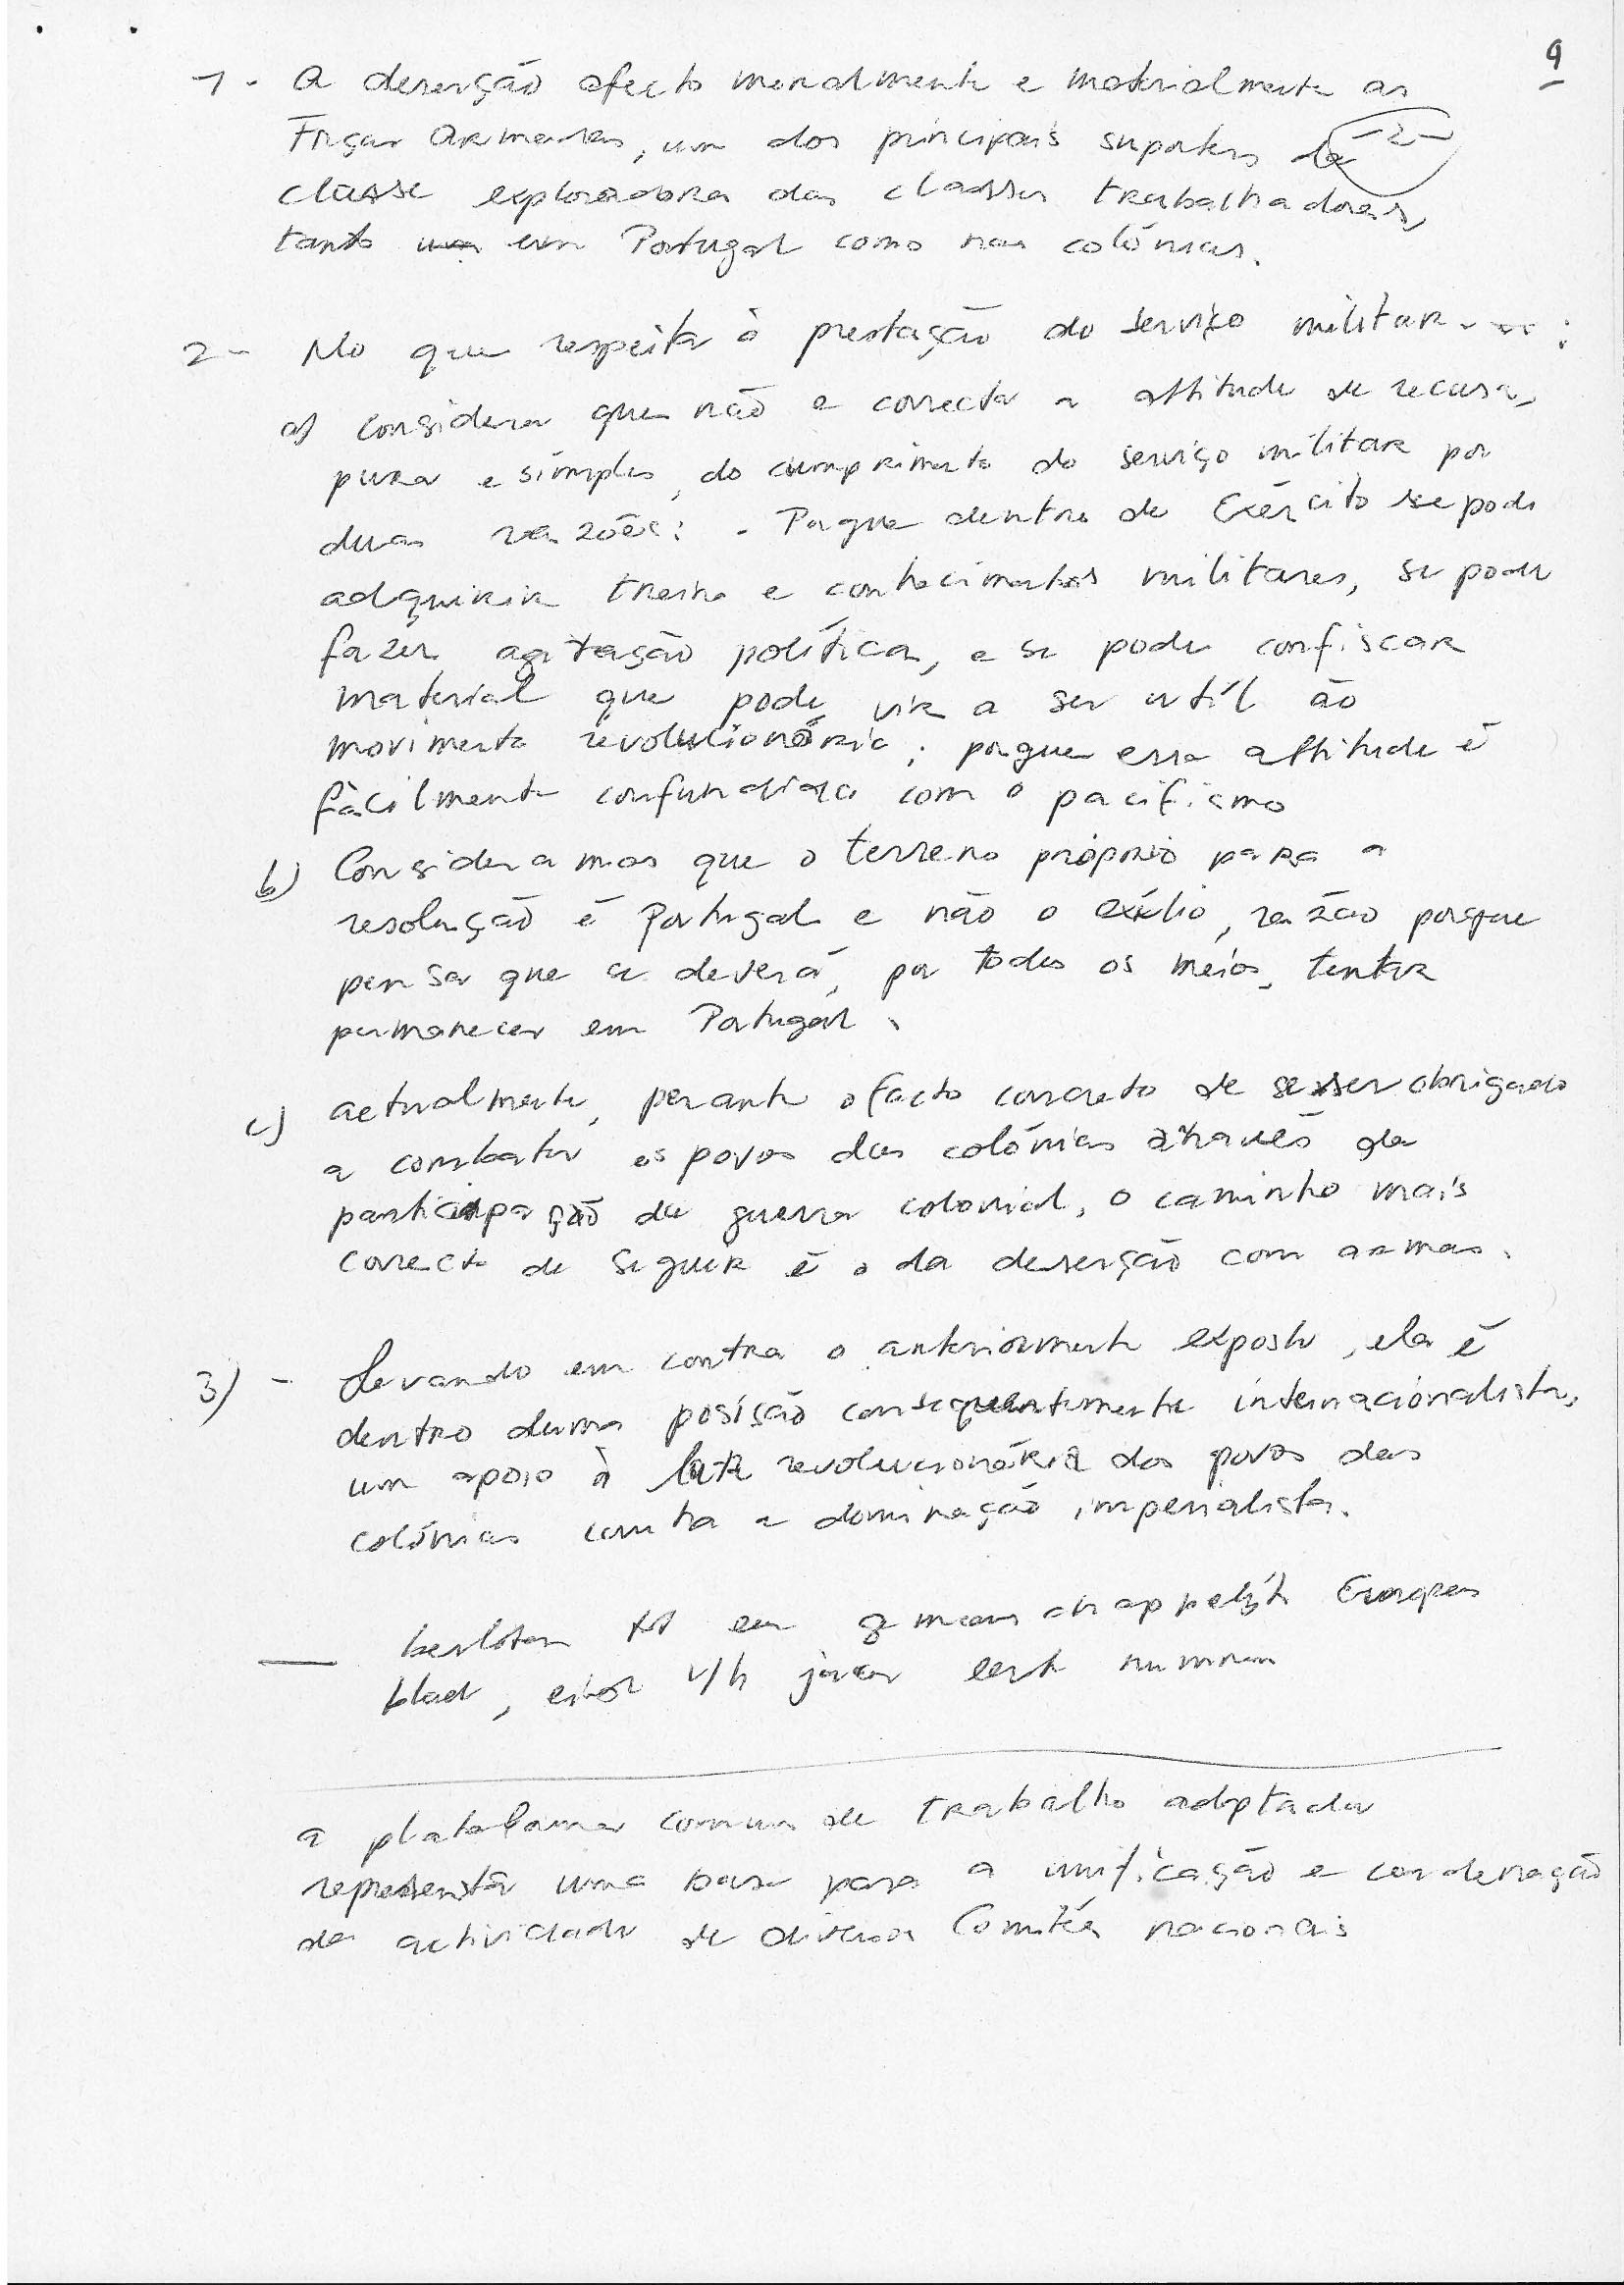 9
1 - A deserção afecta moralmente e materialmente as
-2-
Forças Armadas, um dos principais suportes da
classe exploradora das classes trabalhadoras,
tanto em Portugal como nas colónias.
2 - No que respeita à prestação do serviço militar
a) considera que não e correcta a attitude de recusa,
pura e simples, do cumprimento do serviço militar por
duas razões: - Porque dentro do Exército se pode
adquirir treino e conhecimentos militares, se pode
fazer agitação política, e se pode confiscar
material que pode vir a ser util ão
movimento revolucionário; porque essa attitude é
fàcilmente confundida com o pacifismo
b) Consideramos que o terreno próprio para a
resolução é Portugal e não o exílio, razão porque
pensa que se deverá, por todos os meios, tentar
permanecer em Portugal.
c) actualmente, perante o facto concreto de se ser obrigado
a combater os povos das colónias através da
participação da guerra colonial, o caminho mais
correcto de seguir é o da deserção com armas.
3) - Levando em contra o anteriormente exposto, ela é
dentro duma posição consequentemente internacionalista,
um apoio à luta revolucionária dos povos das
colónias contra a dominação imperialista.
besloten tot een
blad, v/h eerste nummer
a plataforma comum de trabalho adoptada
representa uma base para a unificação e cordenação
da actividade de diversos Comités nacionais